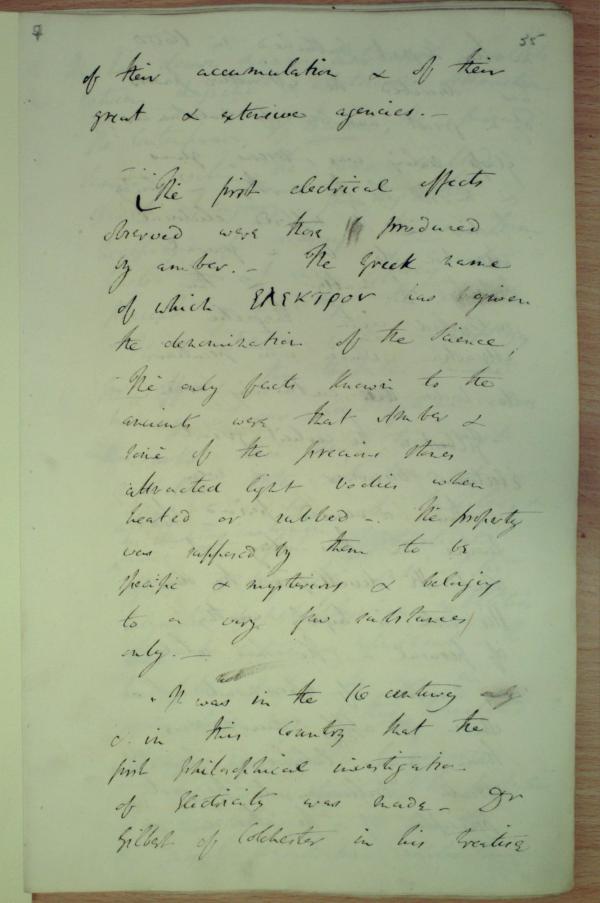 35
of their accumulation & of their
great & extensive agencies. —
The first electrical effects
observed were those produced
by amber. — The Greek name
of which ΕΛΕΚΤΡΟΝ has given
the denomination of the Science,
The only facts known to the
ancients were that Amber &
some of the precious stones
attracted light bodies when
heated or rubbed —. The property
was supposed by them to be
specific & mysterious & belonging
to a very few substances
only. —
It was in the 16 century
& in this Country that the
first philosophical investigation
of Electricity was made — Dr
Gilbert of Colchester in his treatise